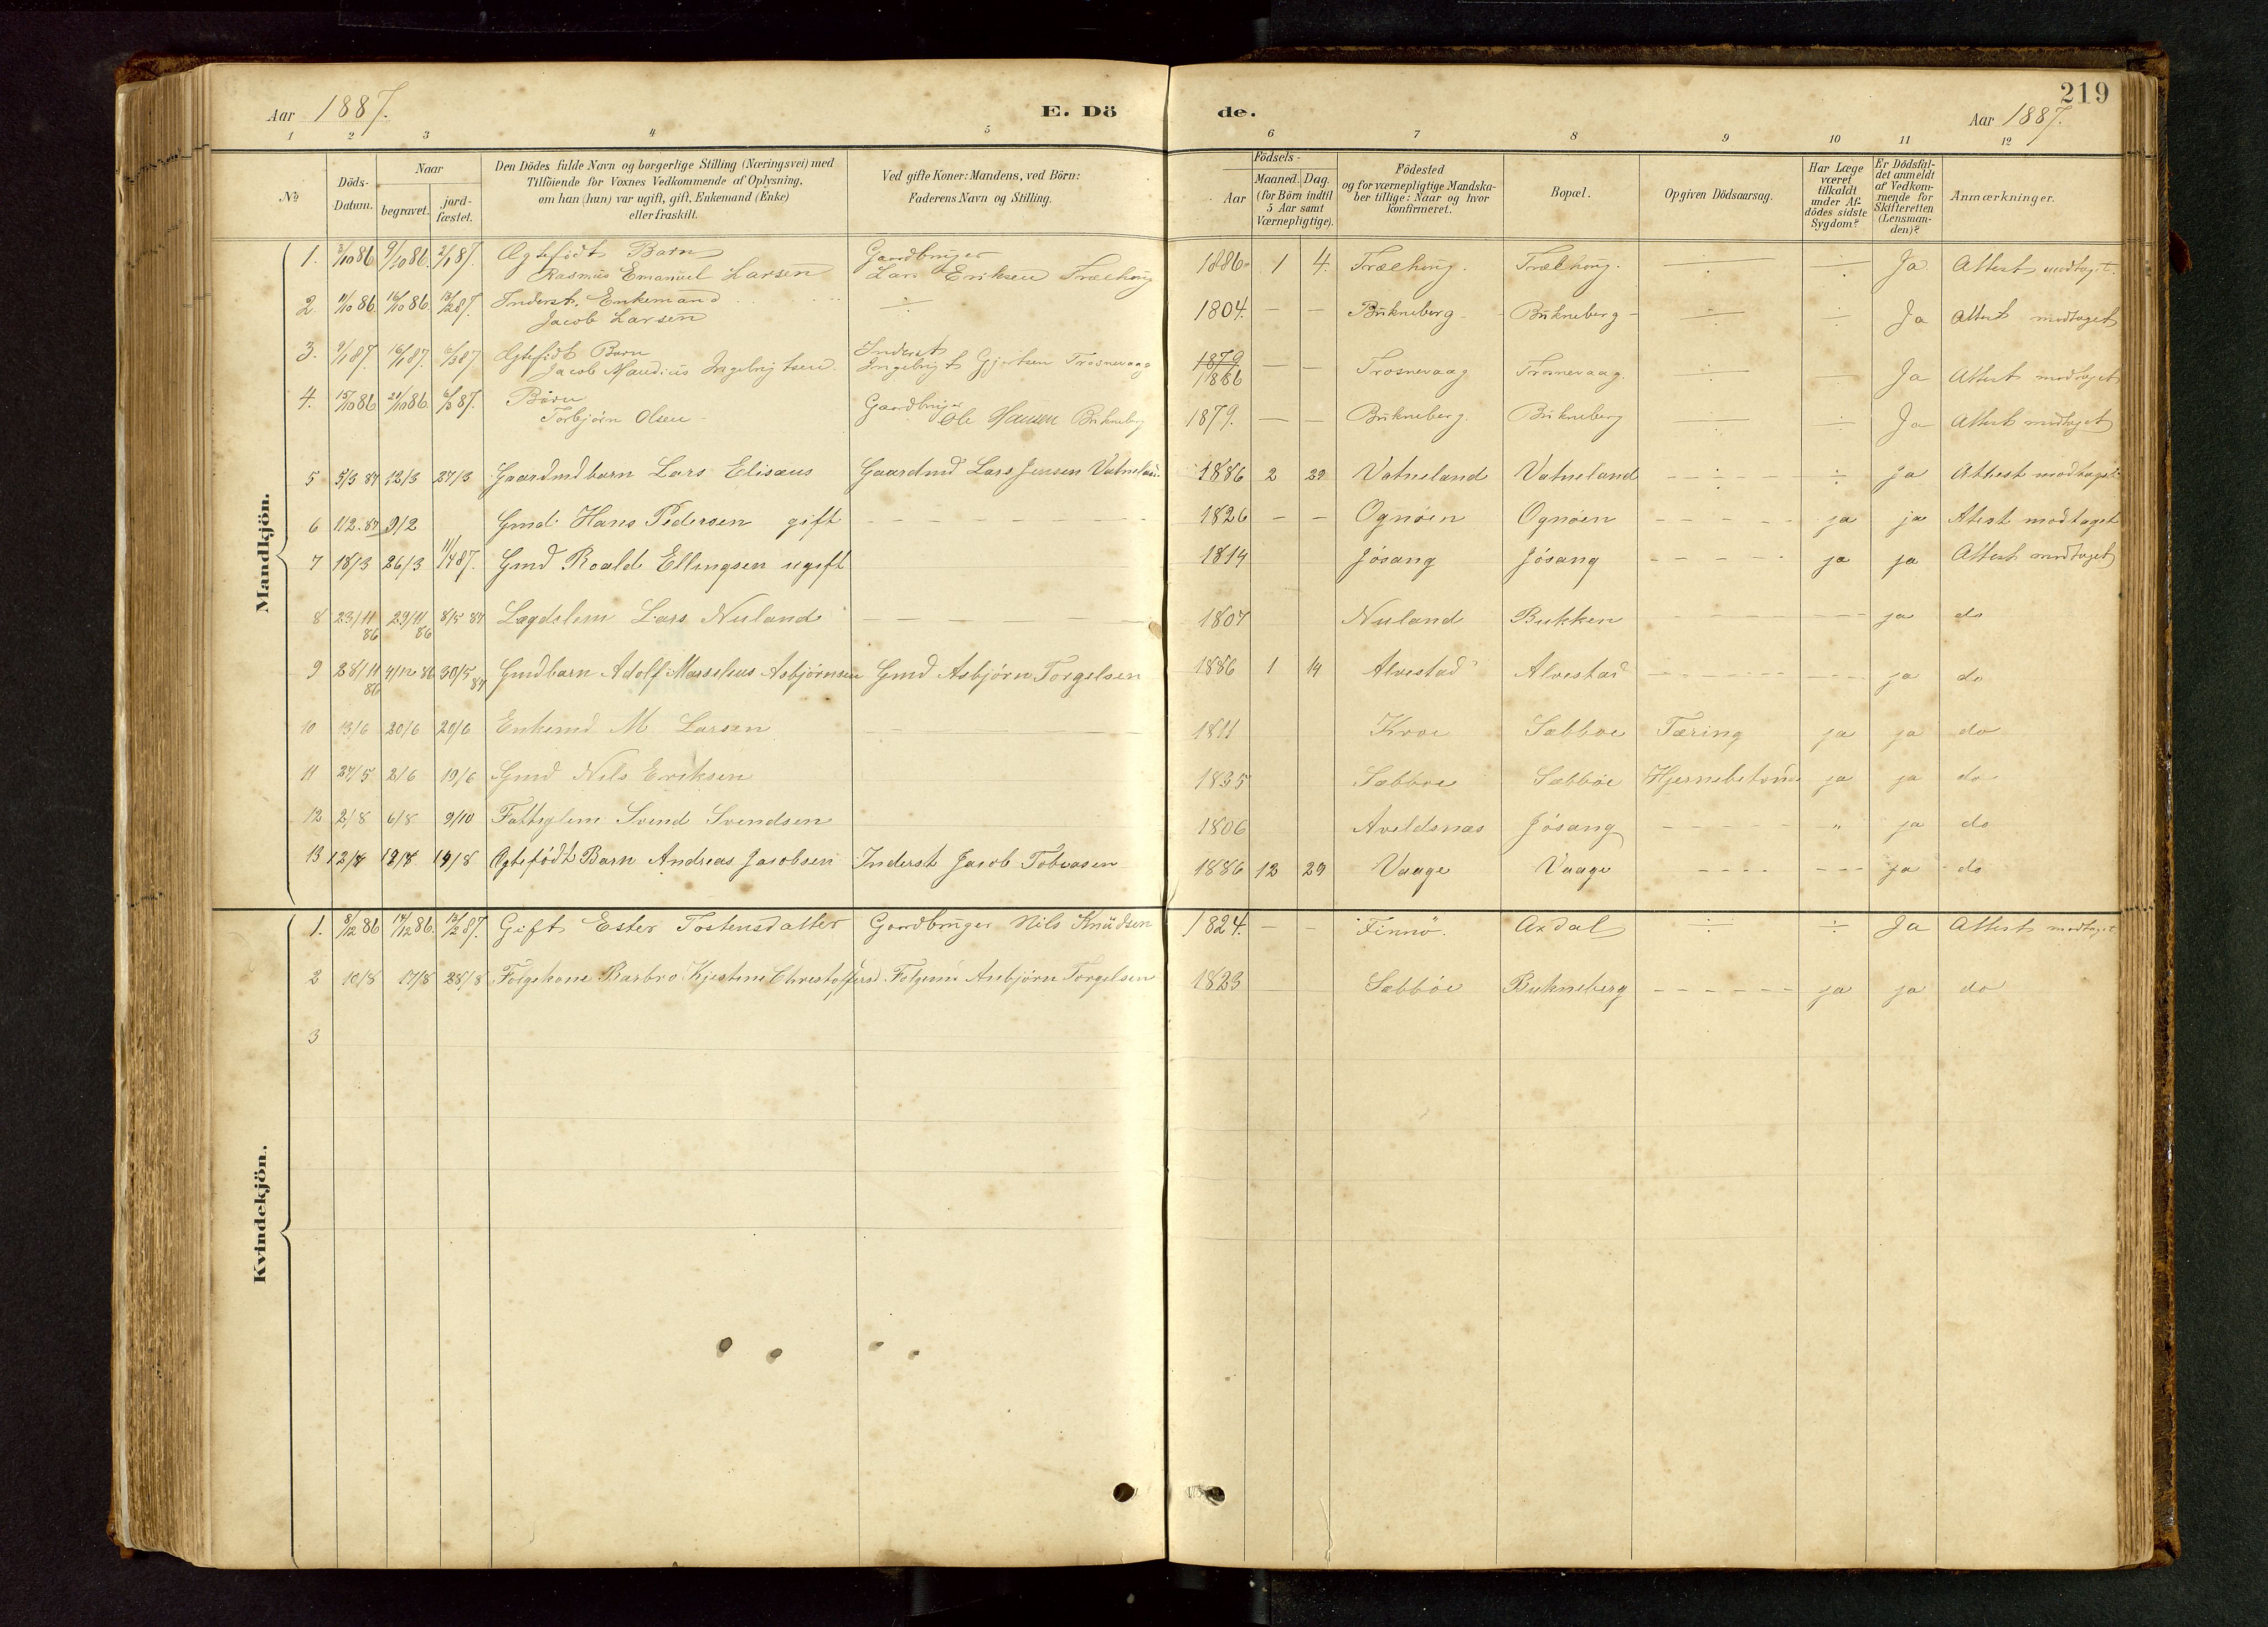 219
Aar 1887. E. Dö de. Aar 1887.
1 2 3 4 5 6 7 8 9 10 11 12
No
Döds-Datum.
Naar
begravet.
jord-fæstet.
Den Dödes fulde Navn og borgerlige Stilling (Næringsvei) med
Tilföiende for Voxnes Vedkommende af Oplysning,
om han (hun) var ugift, gift, Enkemand (Enke)
eller fraskilt.
Ved gifte Koner: Mandens, ved Börn:
Faderens Navn og Stilling.
Födsels-
Aar
Maaned. Dag.
(for Börn indtil
5 Aar samt
Værnepligtige).
Födested
og for værnepligtige Mandska-
ber tillige: Naar og hvor
konfirmeret.
Bopæl.
Opgiven Dödsaarsag.
Har Læge
været
tilkaldt
under Af-
dödes sidste
Sygdom?
Er Dödsfal-
det anmeldt
af Vedkom-
mende for
Skifteretten
(Lensman-
den)?
Anmærkninger.
Mandkjön.
1. 3/10 86 9/10 86. 2/1 87. Ægtefödt Barn Gaardbruger
Rasmus Emanuel Larsen Lars Eriksen Trælhaug 1886 1 4. Trælhaug. Trælhaug. ÷ ÷ Ja Attest modtaget.
2. 11/10 86 16/10 86 13/2 87. Inderst. Enkemand ÷
Jacob Larsen 1804. — — Bukneberg - Bukneberg - ÷ ÷ Ja Attest modtaget
3. 9/1 87. 16/1 87. 6/3 87 Ægtefödt Barn Inderst
Jacob Maudius Ingebrigtsen. Ingebrigt Gjertsen Trosnevaag 1879 1886 — — Trosnevaag Trosnevaag. ÷ ÷ Ja Attest modtaget
4. 15/10 86 21/10 86 6/3 87. Barn Gaardbruger
Torbjörn Olsen Ole Hansen Bukneberg 1879. — — Bukneberg. Bukneberg ÷ ÷ Ja Attest modtaget
5 5/3 87 12/3 27/3 Gaardmdbarn Lars Elisæus Gaardmd Lars Jensen Vatneland 1886 2 29 Vatneland Vatneland ÷ ÷ ja Attest modtaget
6 1/2 87 9/2 Gmd. Hans Pedersen gift — — — 1826 — — Ognöen Ognöen - - - - - ja ja Atest modtaget
7 18/3 26/3 11/4 87. Gmd Roald Ellingsen ugift 1814 Jösang Jösang - - - - ja ja Attest modtaget
8 23/11 86 29/11 86 8/5 87 Lægdslem Lars Nuland — — — 1807 Nuland Bukken - - - - - - - ja do
9 28/11 86 4/12 86 30/5 87 Gmdbarn Adolf Marselius Asbjörnsen Gmd Asbjörn Torgelsen 1886 1 14 Alvestad Alvestad - - - - - - - - ja do
10 13/6 20/6 20/6 Enkemd M Larsen — — — 1811 Kroe Sæbböe Tæring ja ja do
11 27/5 2/6 19/6 Gmd Nils Eriksen 1835 Sæbböe Sæbböe Hjernebetænd. ja ja do
12 2/8 6/8 9/10 Fattiglem Svend Svendsen 1806 Aveldsnæs Jösang - - - - - " ja do
13 12/8 17/8 19/8 Ægtefödt Barn Andreas Jacobsen Inderst Jacob Tobiasen 1886 12 29 Vaage Vaage - - - - - - - ja do
Kvindekjön.
1. 8/12 86 14/12 86. 13/2 87. Gift Ester Tostensdatter Gaardbruger Nils Knudsen 1824. — — Finnö. Axdal ÷ ÷ Ja Attest modtaget
2 10/8 17/8 28/8 Folgekone Barbro Kjestine Chrestoffersd. Folgemd Asbjörn Torgelsen 1823 Sæbböe Bukneberg - - - - - - ja ja do
3